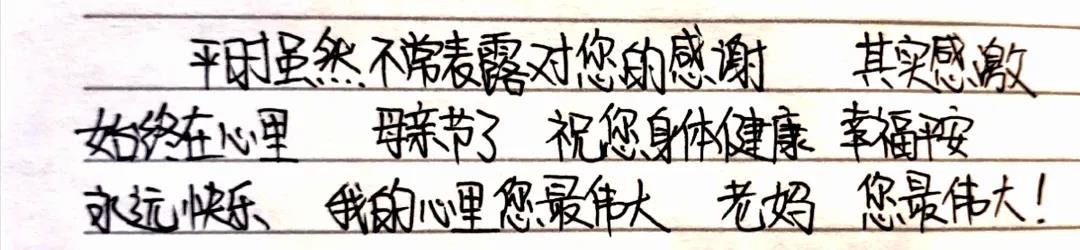 平时虽然不常表露对您的感谢 其实感激
始终在心里 母亲节了 祝您身体健康 幸福平安
永远快乐 我的心里您最伟大 老妈 您最伟大！